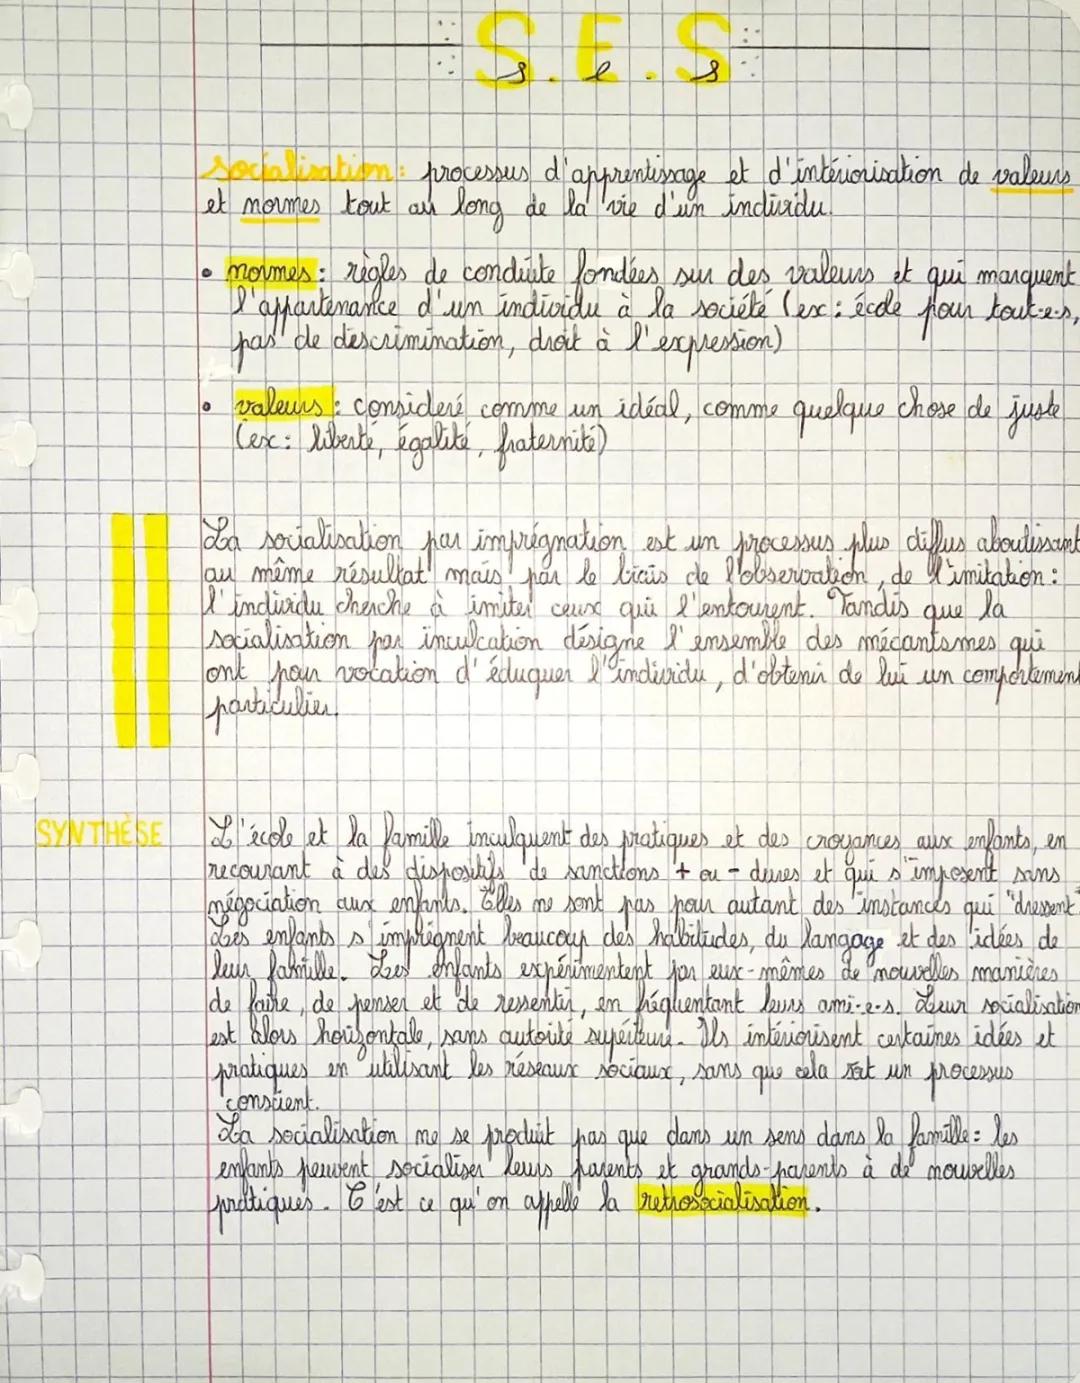 S.E.S
s.e.s
socialisation : processus d'apprentissage et d'intériorisation de valeurs
et normes tout au long de la vie d'un individu.
• normes : règles de conduite fondées sur des valeurs et qui marquent
l'appartenance d'un individu à la société (ex : école pour tout-e-s,
pas de discrimination, droit à l'expression)
• valeurs : consideré comme un idéal, comme quelque chose de juste
(ex : liberté, égalité, fraternité)
La socialisation par imprégnation est un processus plus diffus aboutissant
au même résultat mais par le biais de l'observation, de l'imitation :
l'individu cherche à imiter ceux qui l'entourent. Tandis que la
socialisation par inculcation désigne l'ensemble des mécanismes qui
ont pour vocation d'éduquer l'individu, d'obtenir de lui un comportement
particulier.
SYNTHÈSE
L'école et la famille inculquent des pratiques et des croyances aux enfants, en
recourant à des dispositifs de sanctions + ou - dures et qui s'imposent sans
négociation aux enfants. Elles ne sont pas pour autant des instances qui "dressent"
Les enfants s'imprègnent beaucoup des habitudes, du langage et des idées de
leur famille. Les enfants expérimentent par eux-mêmes de nouvelles manières
de faire, de penser et de ressentir, en fréquentant leurs ami-e-s. Leur socialisation
est alors horizontale, sans autorité supérieure. Ils intériorisent certaines idées et
pratiques en utilisant les réseaux sociaux, sans que cela soit un processus
conscient.
La socialisation ne se produit pas que dans un sens dans la famille : les
enfants peuvent socialiser leurs parents et grands-parents à de nouvelles
pratiques. C'est ce qu'on appelle la retrosocialisation.